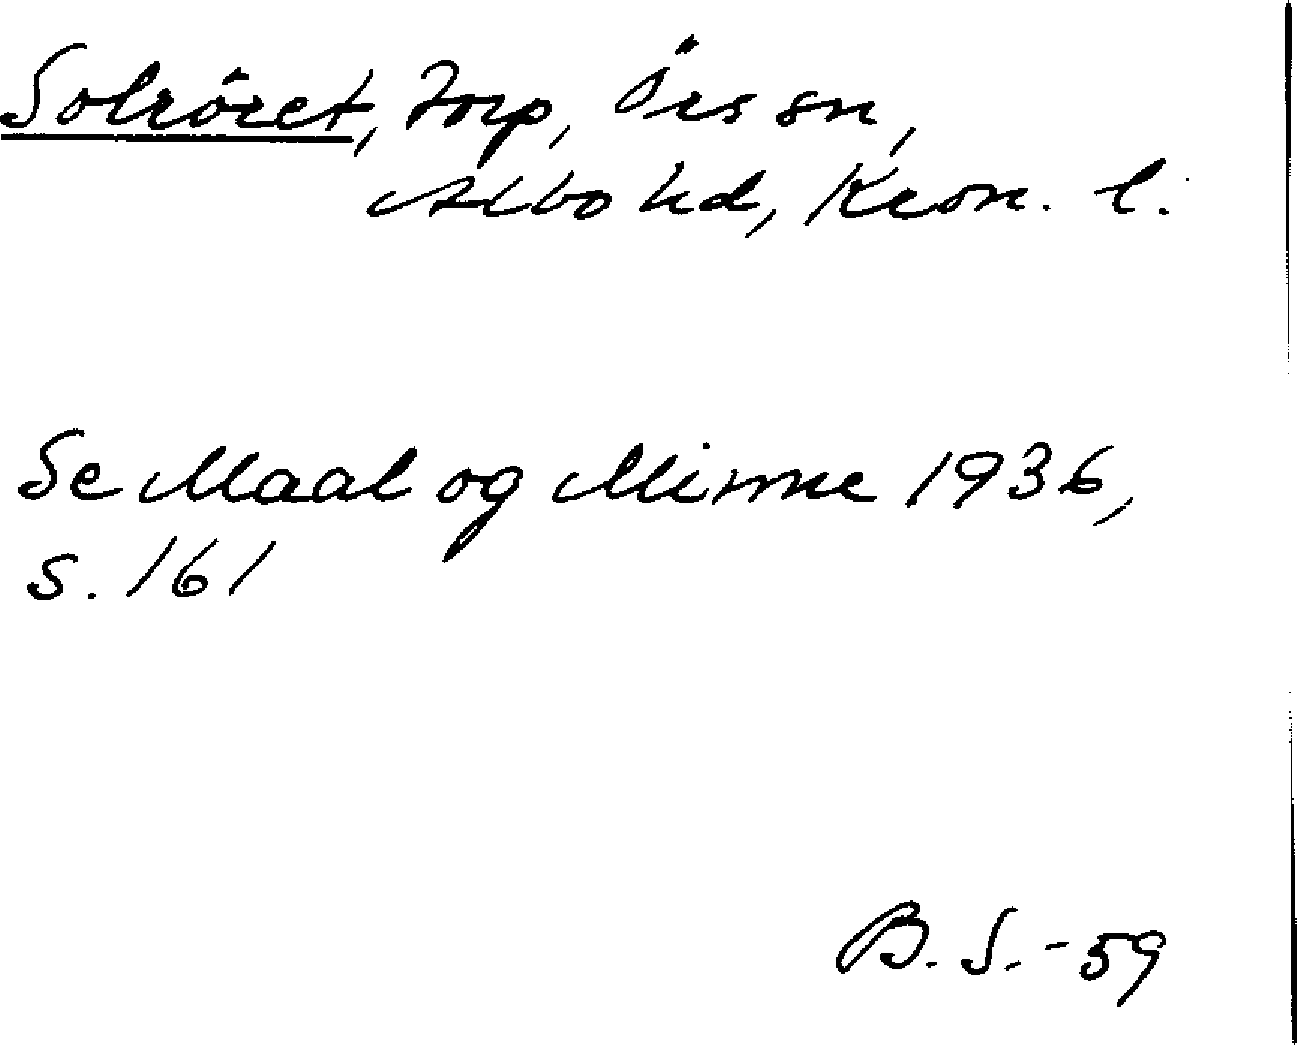 Solröret, torp, Örs sn,
Albo hd, Kron. l.
Se Maal og Minne 1936,
s. 161
B. S. -59